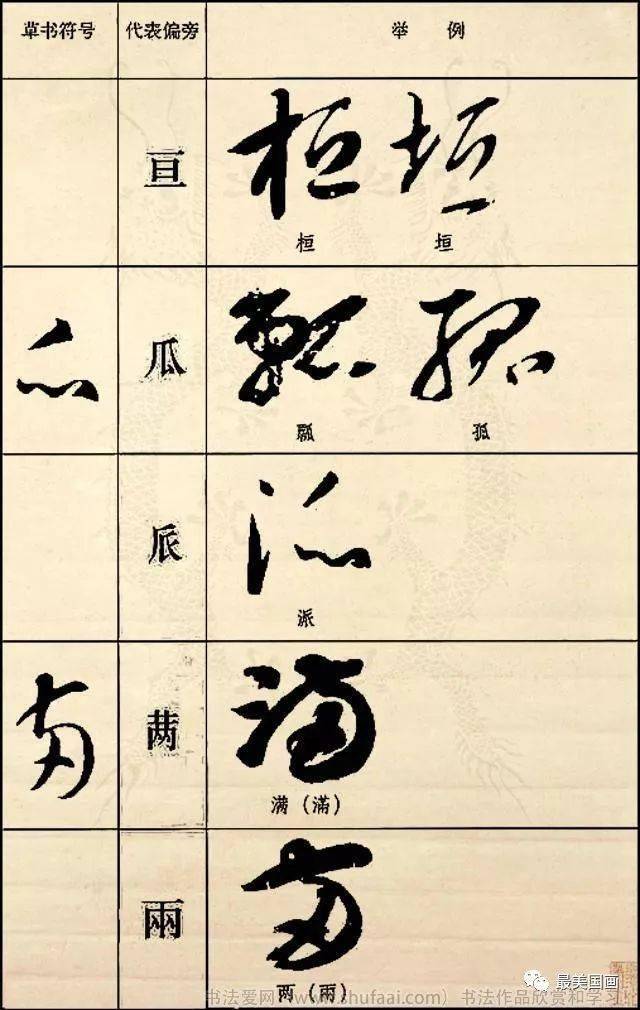 草书符号 代表偏旁 举 例
亘 桓 垣
桓 垣
瓜 瓢 孤
瓢 孤
𠂢 派
派
㒼 满
满（滿）
兩 两
两（兩）
书法爱网（www.shufaai.com）书法作品欣赏和学习
最美国画